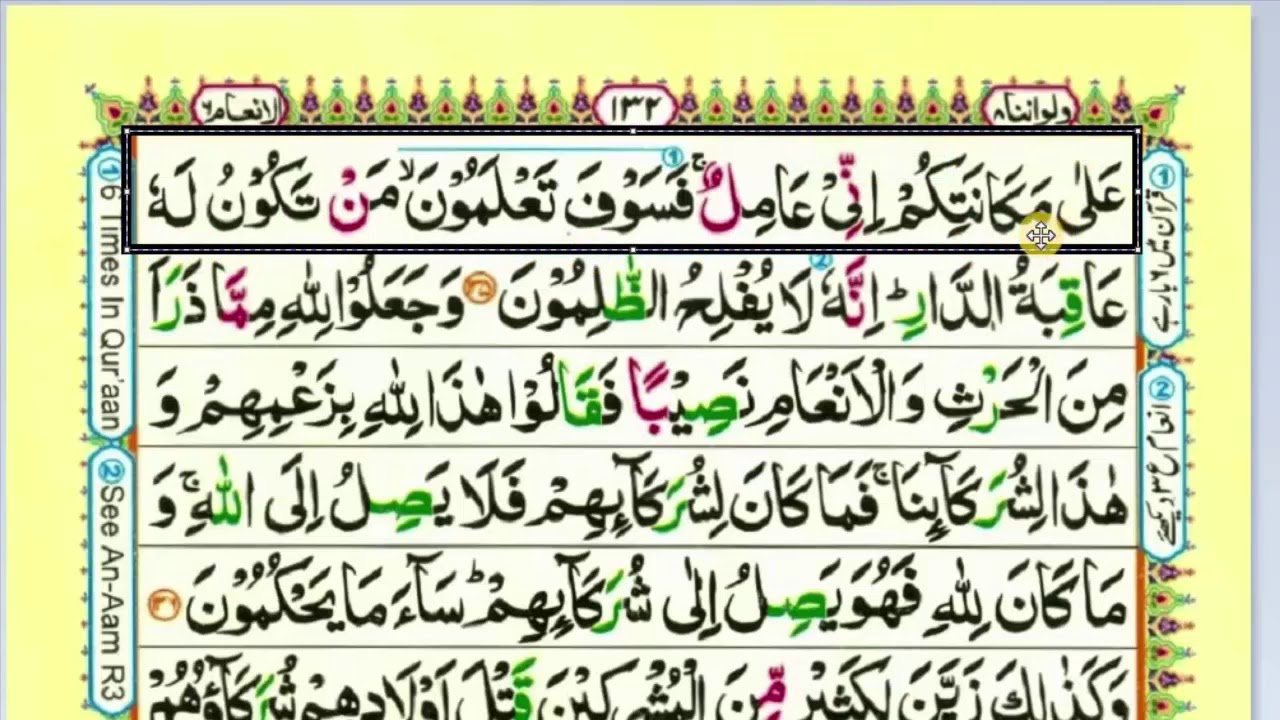 ولو اننا ۸
۱۳۲
الانعام ۶
عَلٰى مَكَانَتِكُمْ اِنِّىْ عَامِلٌ ۚ فَسَوْفَ تَعْلَمُوْنَ ۙ مَنْ تَكُوْنُ لَهٗ
عَاقِبَةُ الدَّارِ ؕ اِنَّهٗ لَا يُفْلِحُ الظّٰلِمُوْنَ وَجَعَلُوْا لِلّٰهِ مِمَّا ذَرَاَ
مِنَ الْحَرْثِ وَالْاَنْعَامِ نَصِيْبًا فَقَالُوْا هٰذَا لِلّٰهِ بِزَعْمِهِمْ وَ
هٰذَا لِشُرَكَآئِنَا ۚ فَمَا كَانَ لِشُرَكَآئِهِمْ فَلَا يَصِلُ اِلَى اللّٰهِ ۚ وَ
مَا كَانَ لِلّٰهِ فَهُوَ يَصِلُ اِلٰى شُرَكَآئِهِمْ ؕ سَآءَ مَا يَحْكُمُوْنَ
وَكَذٰلِكَ زَيَّنَ لِكَثِيْرٍ مِّنَ الْمُشْرِكِيْنَ قَتْلَ اَوْلَادِهِمْ شُرَكَآؤُهُمْ
① قرآن میں ۶ بار ہے
① 6 Times In Qur'aan
② See An-Aam R3